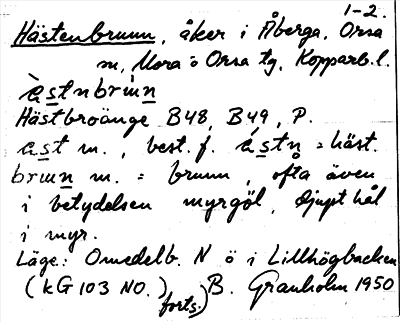 1-2.
Hästenbrunn, åker i Åberga, Orsa
m, Mora o Orsa tg, Kopparb. l.
àstnbrùnn
Hästbroänge B48, B49, P.
ast m., best. f. ástn = häst.
brunn m. = brunn, ofta även
i betydelsen myrgöl, djupt hål
i myr.
Läge: Omedelb. N ö i Lillhögbacken
(KG 103 NO.) B. Granholm 1950
forts.)